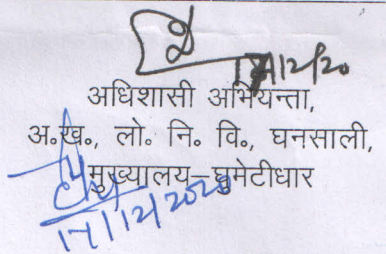 17/12/20
अधिशासी अभियन्ता,
अ.ख., लो. नि. वि., घनसाली,
मुख्यालय-घुमेटीधार
17/12/2020